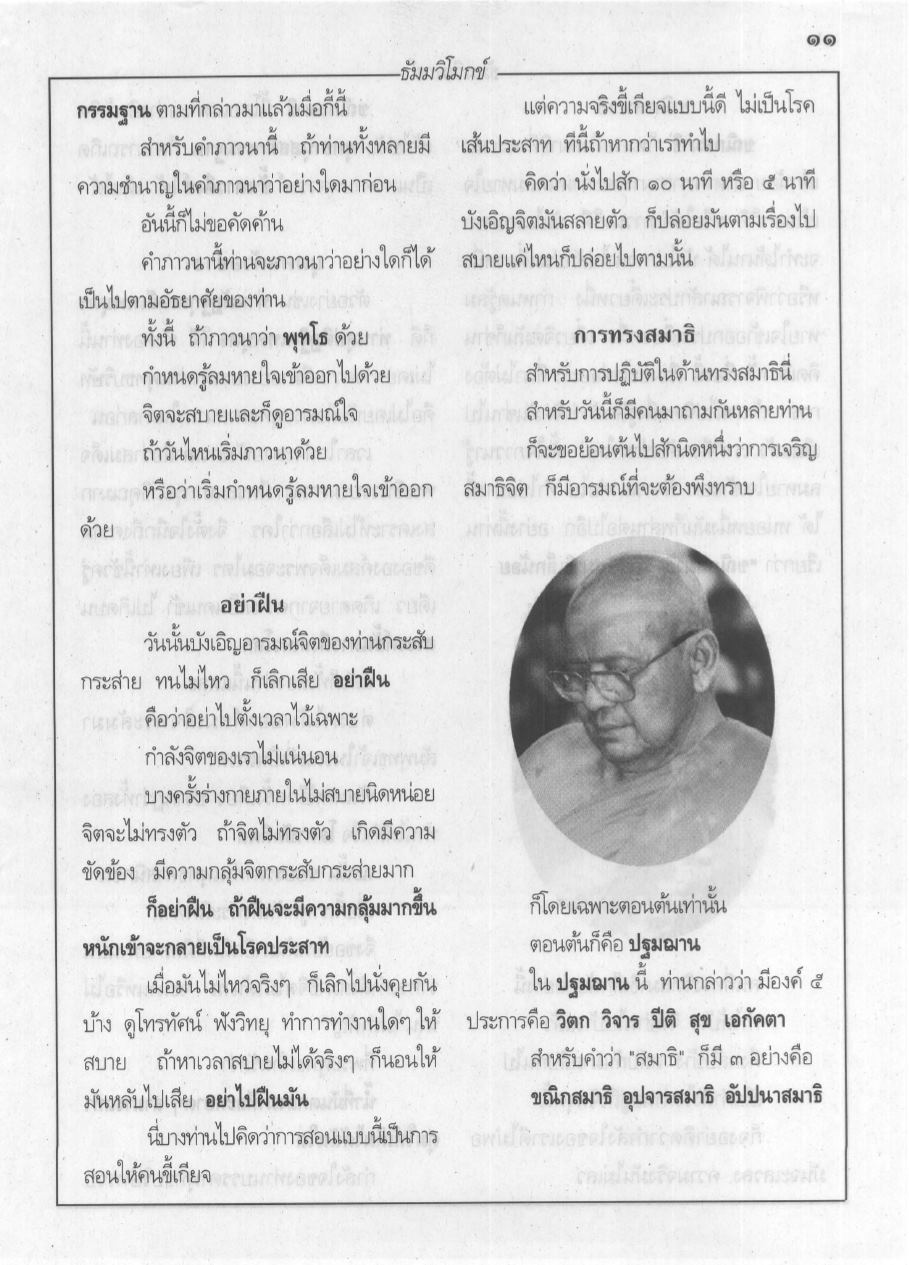 ๑๑
ธัมมวิโมกข์
กรรมฐาน ตามที่กล่าวมาแล้วเมื่อกี้นี้
สำหรับคำภาวนานี้ ถ้าท่านทั้งหลายมี
ความชำนาญในคำภาวนาว่าอย่างใดมาก่อน
อันนี้ก็ไม่ขอคัดค้าน
คำภาวนานี้ท่านจะภาวนาว่าอย่างใดก็ได้
เป็นไปตามอัธยาศัยของท่าน
ทั้งนี้ ถ้าภาวนาว่า พุทโธ ด้วย
กำหนดรู้ลมหายใจเข้าออกไปด้วย
จิตจะสบายและก็ดูอารมณ์ใจ
ถ้าวันไหนเริ่มภาวนาด้วย
หรือว่าเริ่มกำหนดรู้ลมหายใจเข้าออก
ด้วย
อย่าฝืน
วันนั้นบังเอิญอารมณ์จิตของท่านกระสับ
กระส่าย ทนไม่ไหว ก็เลิกเสีย อย่าฝืน
คือว่าอย่าไปตั้งเวลาไว้เฉพาะ
กำลังจิตของเราไม่แน่นอน
บางครั้งร่างกายภายในไม่สบายนิดหน่อย
จิตจะไม่ทรงตัว ถ้าจิตไม่ทรงตัว เกิดมีความ
ขัดข้อง มีความกลุ้มจิตกระสับกระส่ายมาก
ก็อย่าฝืน ถ้าฝืนจะมีความกลุ้มมากขึ้น
หนักเข้าจะกลายเป็นโรคประสาท
เมื่อมันไม่ไหวจริงๆ ก็เลิกไปนั่งคุยกัน
บ้าง ดูโทรทัศน์ ฟังวิทยุ ทำการทำงานใดๆ ให้
สบาย ถ้าหาเวลาสบายไม่ได้จริงๆ ก็นอนให้
มันหลับไปเสีย อย่าไปฝืนมัน
นี่บางท่านไปคิดว่าการสอนแบบนี้เป็นการ
สอนให้คนขี้เกียจ
แต่ความจริงขี้เกียจแบบนี้ดี ไม่เป็นโรค
เส้นประสาท ทีนี้ถ้าหากว่าเราทำไป
คิดว่า นั่งไปสัก ๑๐ นาที หรือ ๕ นาที
บังเอิญจิตมันสลายตัว ก็ปล่อยมันตามเรื่องไป
สบายแค่ไหนก็ปล่อยไปตามนั้น
การทรงสมาธิ
สำหรับการปฏิบัติในด้านทรงสมาธินี่
สำหรับวันนี้ก็มีคนมาถามกันหลายท่าน
ก็จะขอย้อนต้นไปสักนิดหนึ่งว่าการเจริญ
สมาธิจิต ก็มีอารมณ์ที่จะต้องพึงทราบ
ก็โดยเฉพาะตอนต้นเท่านั้น
ตอนต้นก็คือ ปฐมฌาน
ใน ปฐมฌาน นี้ ท่านกล่าวว่า มีองค์ ๕
ประการคือ วิตก วิจาร ปีติ สุข เอกัคตา
สำหรับคำว่า "สมาธิ" ก็มี ๓ อย่างคือ
ขณิกสมาธิ อุปจารสมาธิ อัปปนาสมาธิ